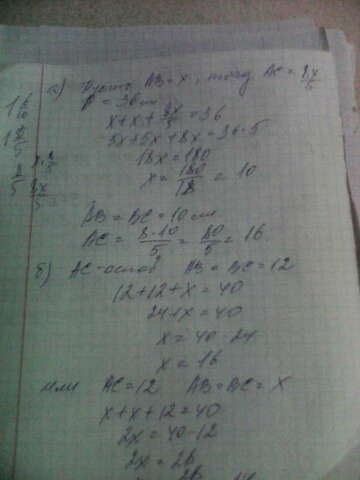 а) Пусть AB = x, тогда AC = 8x/5
P = 36 см
x + x + 8x/5 = 36
5x + 5x + 8x = 36·5
18x = 180
x = 180/18 = 10
AB = BC = 10 см.
AC = 8·10/5 = 80/5 = 16
б) AC-основ AB = BC = 12
12 + 12 + x = 40
24 + x = 40
x = 40-24
x = 16
или AC = 12 AB = BC = x
x + x + 12 = 40
2x = 40-12
2x = 28